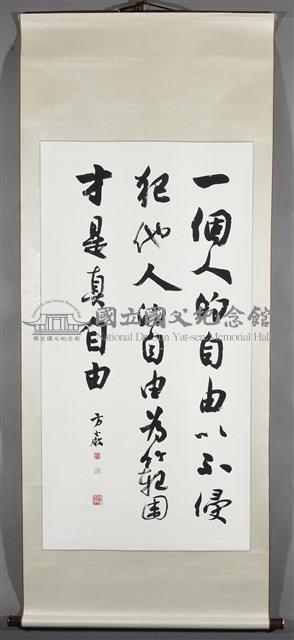 一個人的自由以不侵
犯他人的自由為範圍
才是真自由
國立國父紀念館
National Dr. Sun Yat-sen Memorial Hall